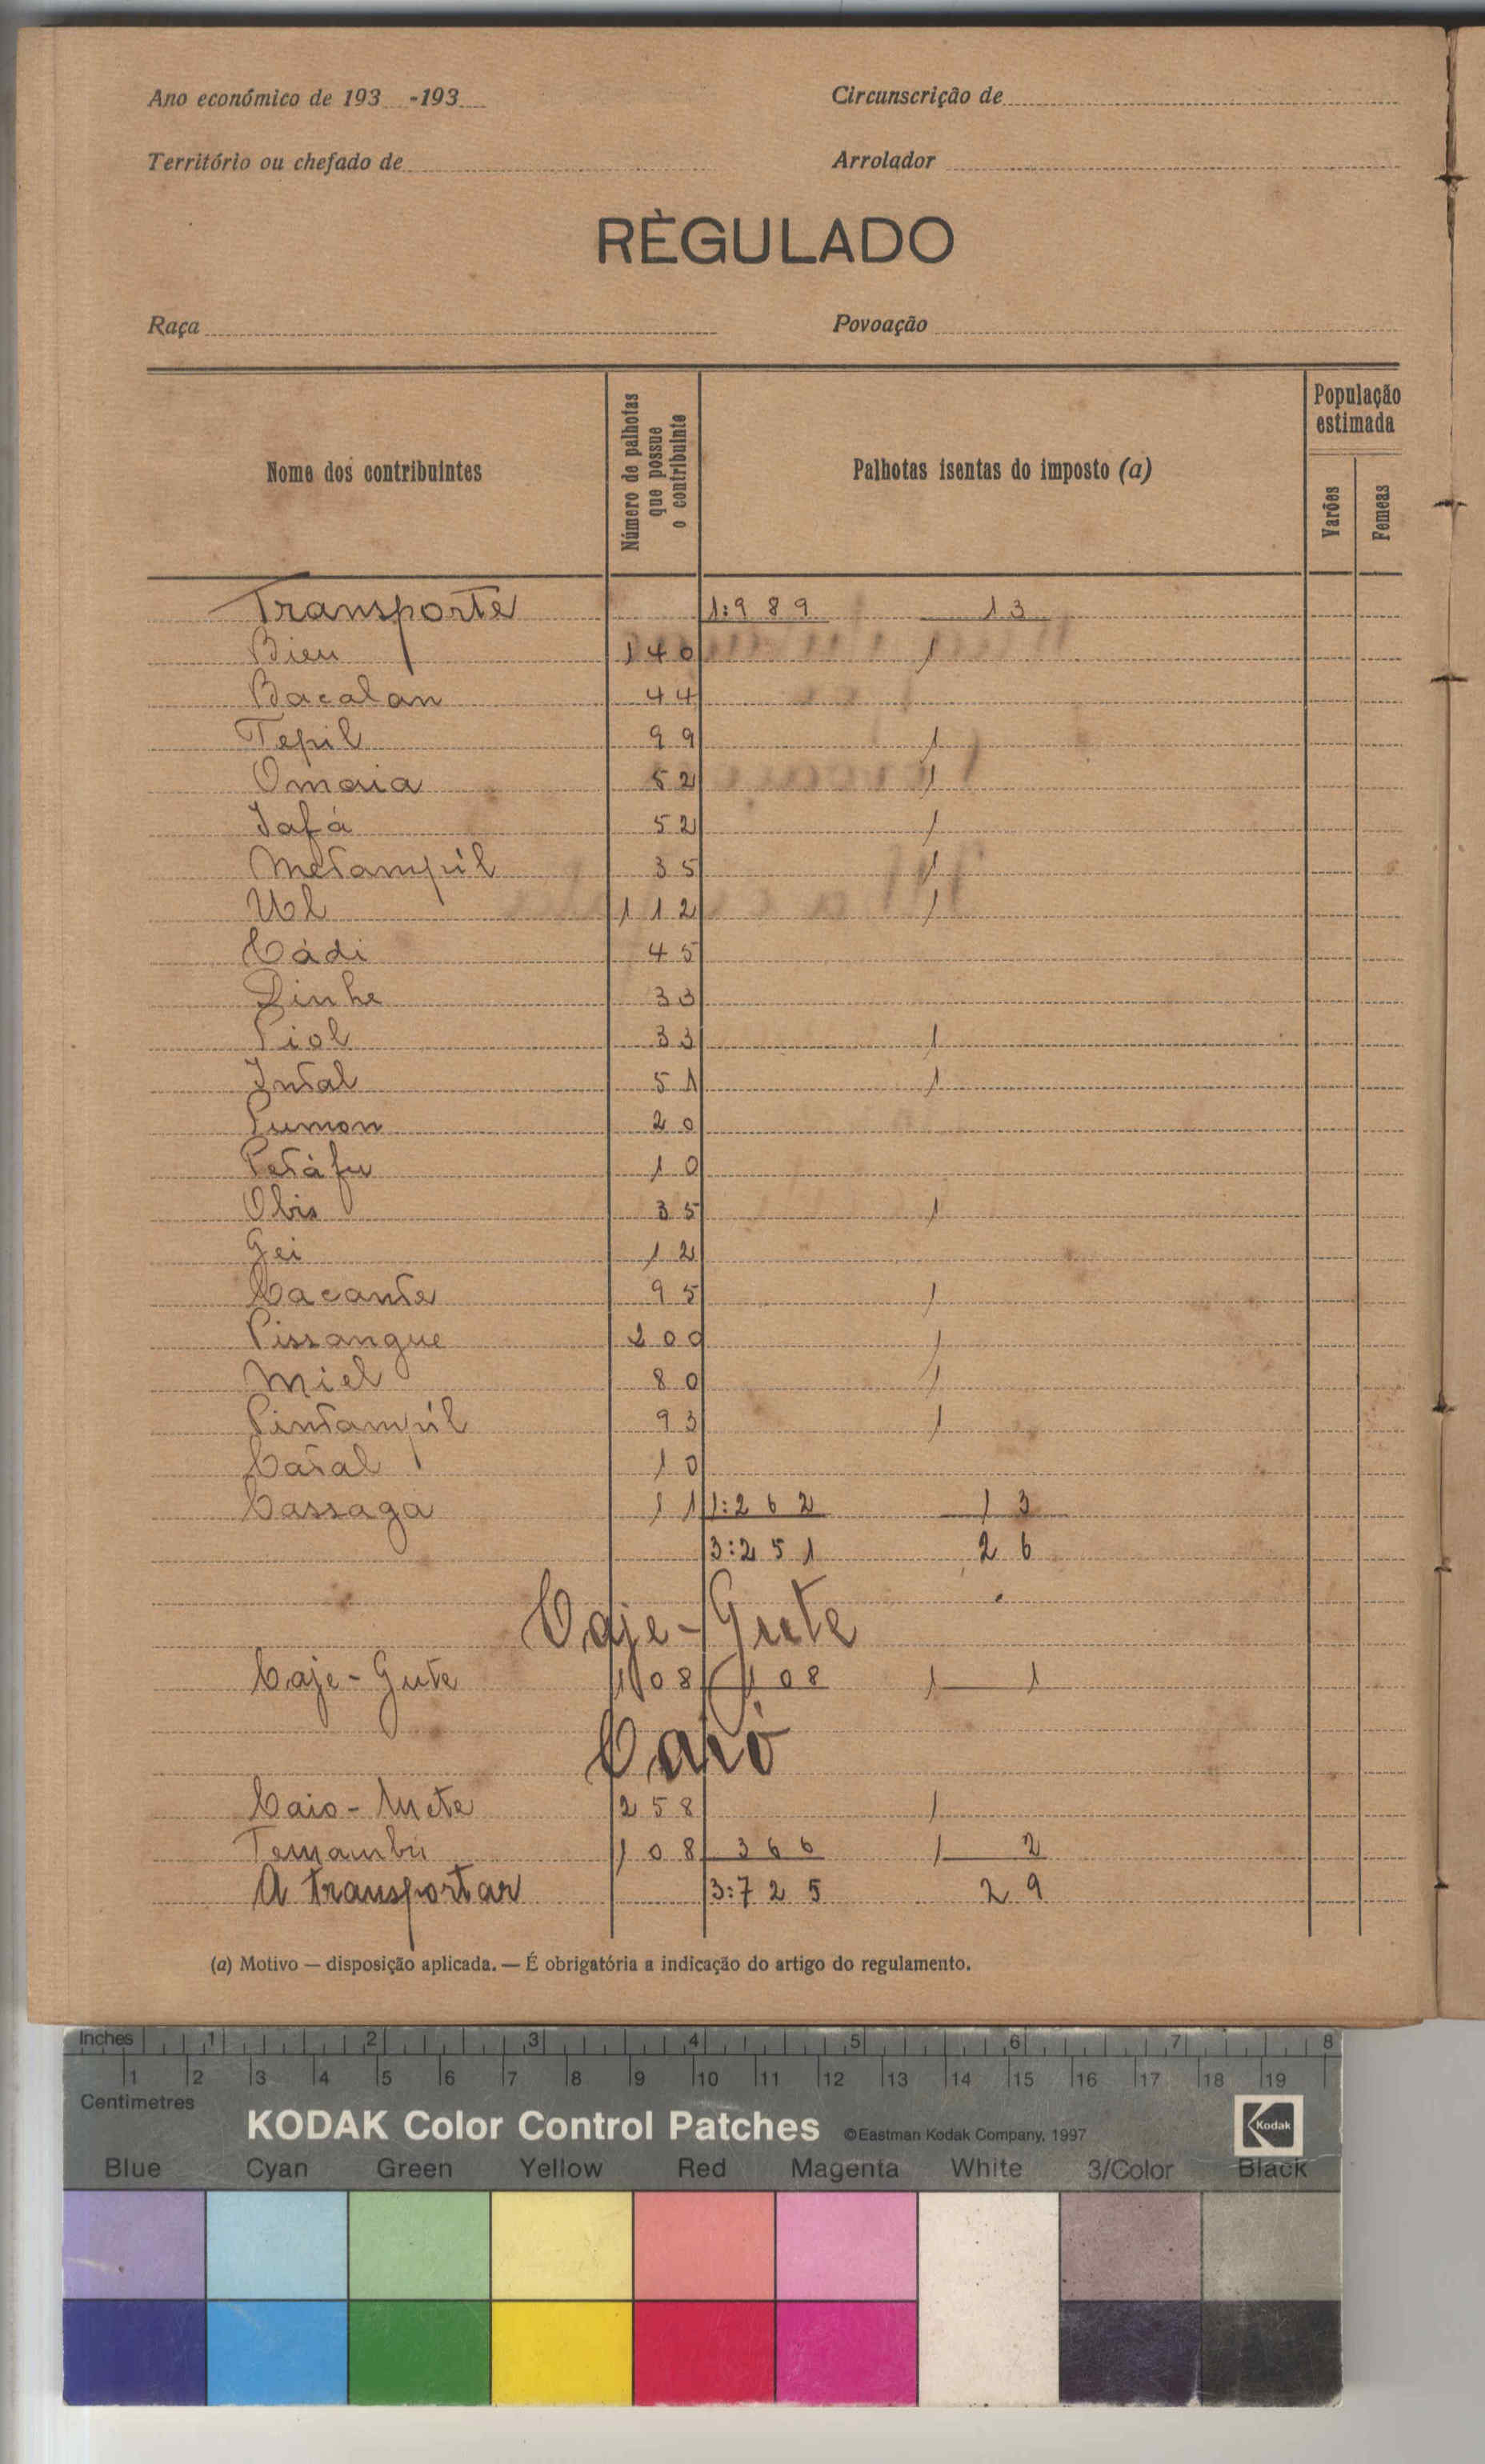 Ano económico de 193 -193
Circunscrição de
Território ou chefado de
Arrolador
RÈGULADO
Raça
Povoação
Nome dos contribuintes
Número de palhotas que possue o contribuinte
Palhotas isentas do imposto (a)
População estimada
Varões
Femeas
Transporte 1:989 13
Bieu 140 1
Bacalan 44
Tepil 99 1
Omaia 52 1
Jafá 52 1
Metampúl 35 1
Ubl 112 1
Cádi 45
Dinhe 33
Piol 33 1
Intal 51 1
Pumon 20
Petáfu 10
Obis 35 1
Gei 12
Cacante 95 1
Pissangue 200 1
Miel 80 1
Pintampúl 93 1
Catal 10
Cassaga 11 1:262 13
3:251 26
Caje-Gute
Caje-Gute 108 108 1 1
Caió
Caio-Mete 258 1
Temambú 108 366 1 2
A transportar 3:725 29
(a) Motivo — disposição aplicada. — É obrigatória a indicação do artigo do regulamento.
Inches 1 2 3 4 5 6 7 8
1 2 3 4 5 6 7 8 9 10 11 12 13 14 15 16 17 18 19
Centimetres
KODAK Color Control Patches ©Eastman Kodak Company, 1997 Kodak
Blue Cyan Green Yellow Red Magenta White 3/Color Black